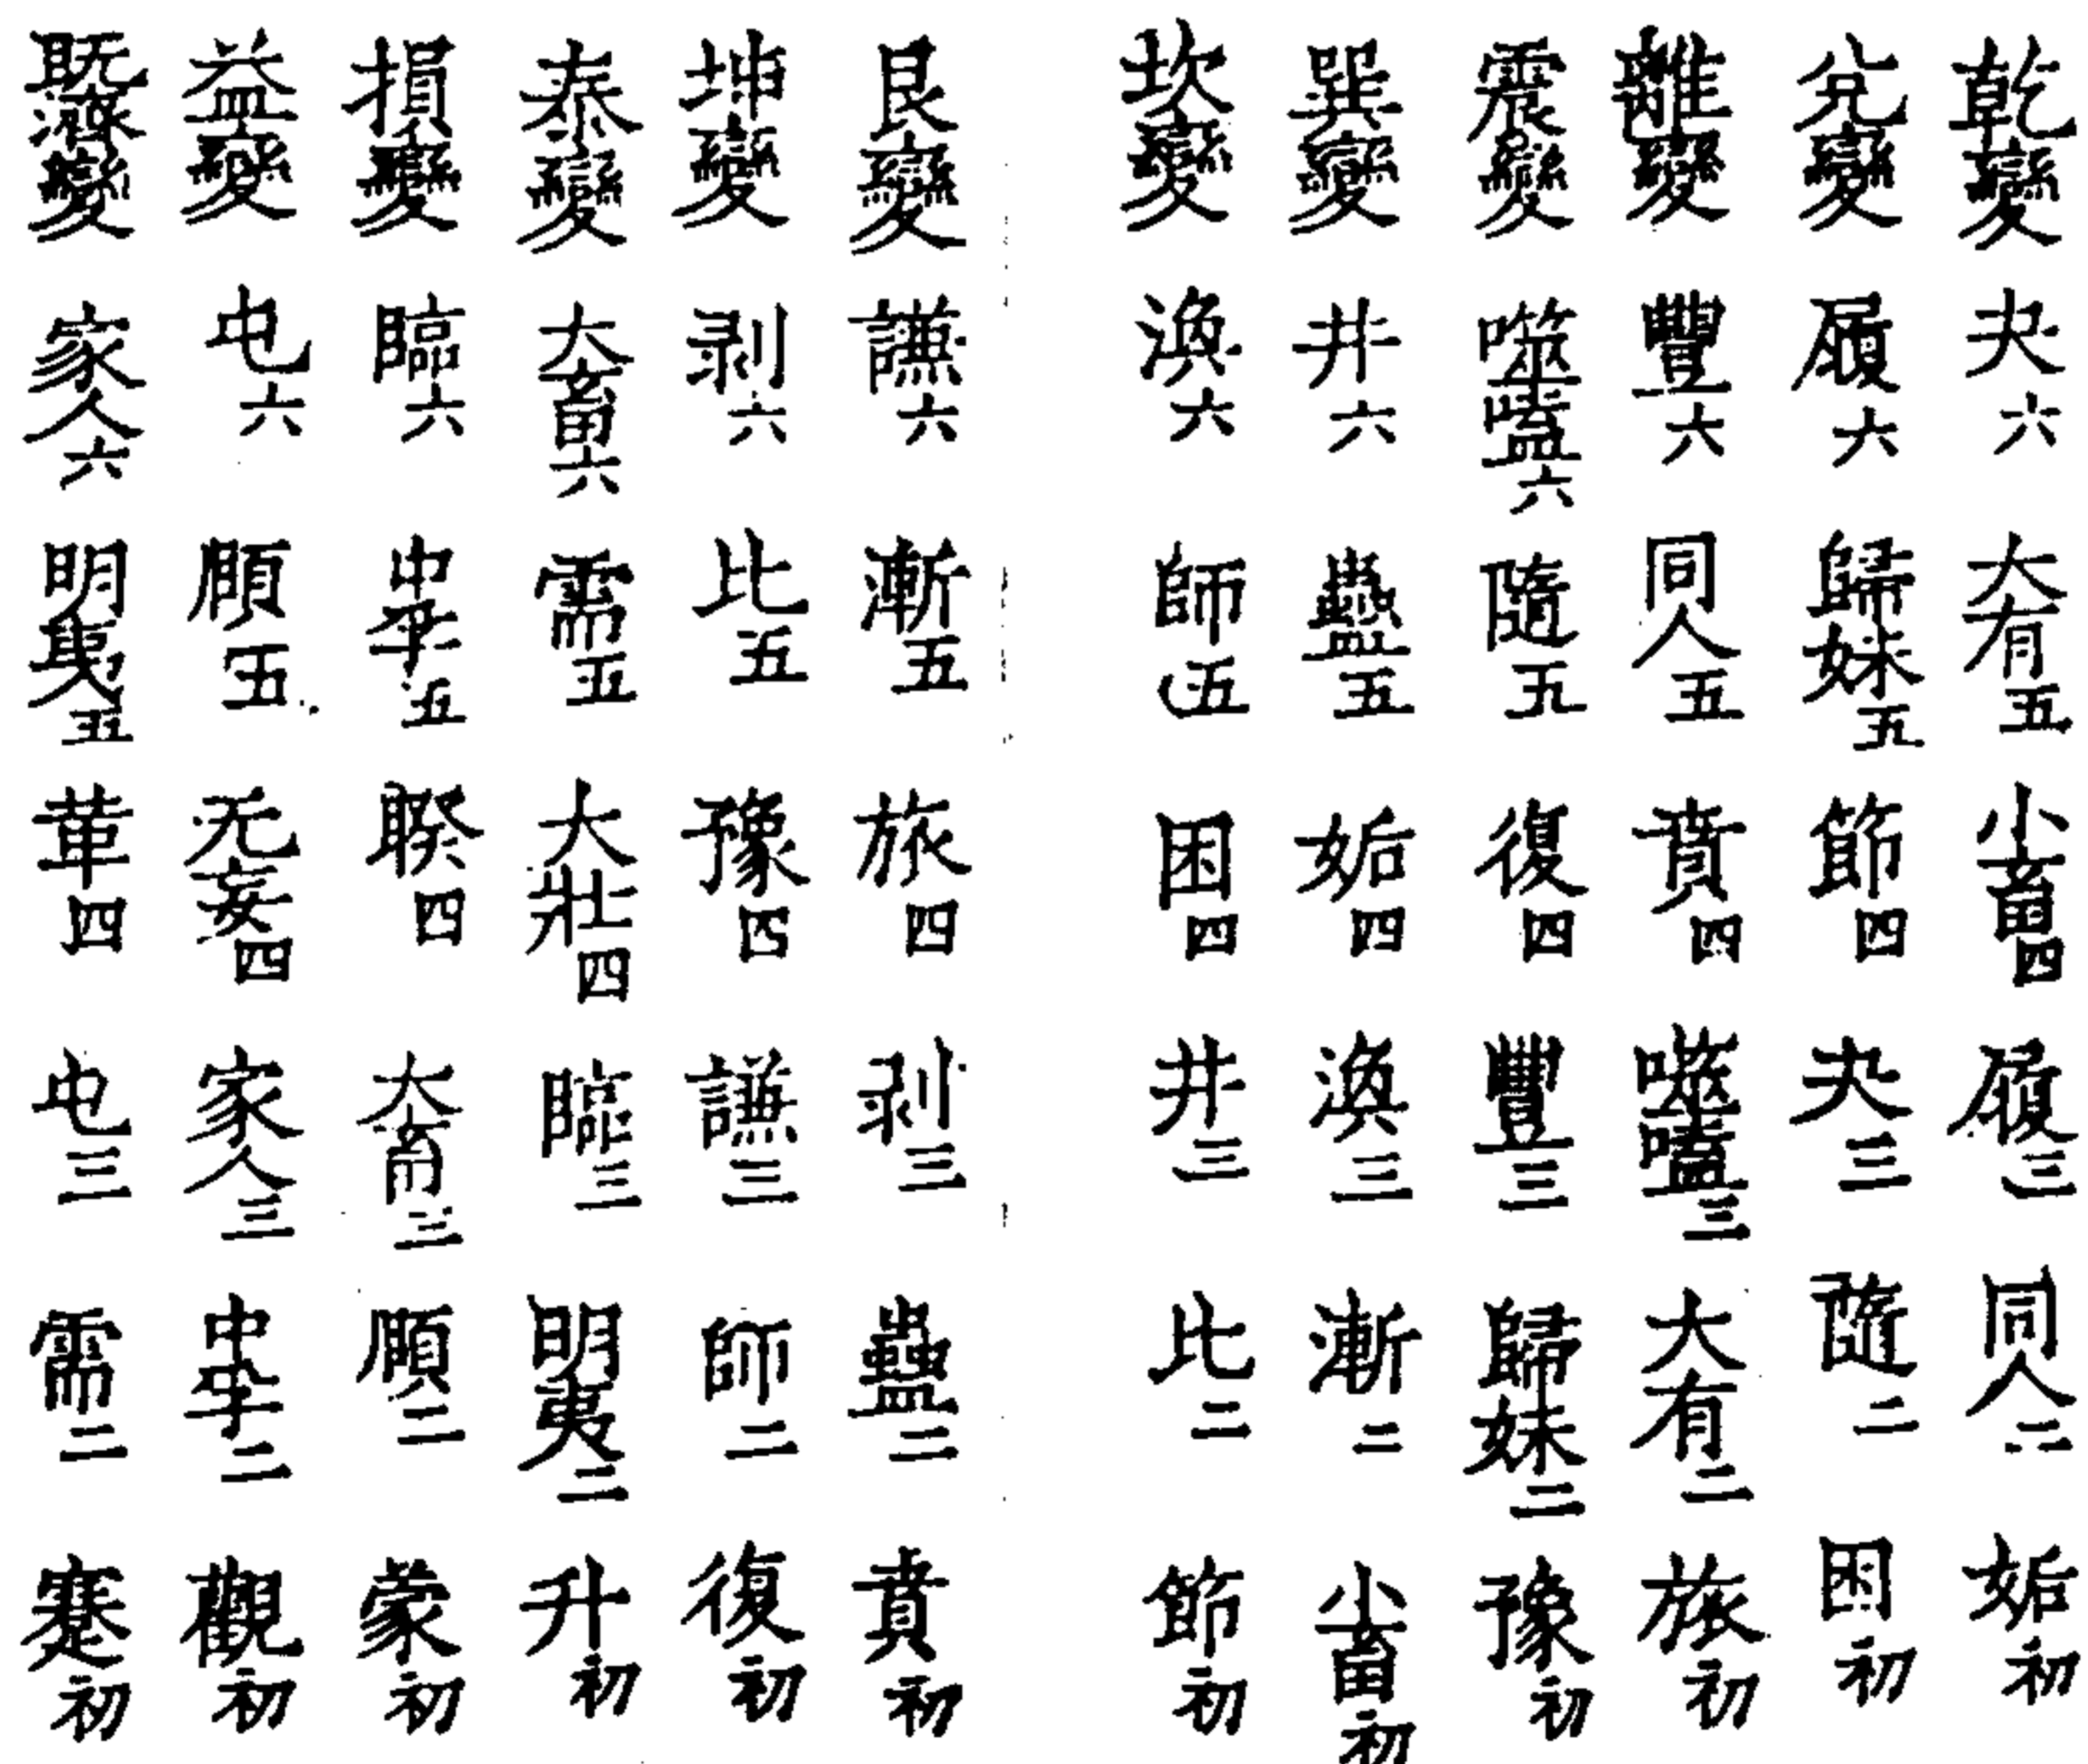 乾變 夬六 大有五 小畜四 履三 同人二 姤初
兌變 履六 歸妹五 節四 夬三 隨二 困初
離變 豐六 同人五 賁四 噬嗑三 大有二 旅初
震變 噬嗑六 隨五 復四 豐三 歸妹二 豫初
巽變 井六 蠱五 姤四 渙三 漸二 小畜初
坎變 渙六 師五 困四 井三 比二 節初
艮變 謙六 漸五 旅四 剥三 蠱二 賁初
坤變 剥六 比五 豫四 謙三 師二 復初
泰變 大畜六 需五 大壯四 臨三 明夷二 升初
損變 臨六 中孚五 睽四 大畜三 頤二 蒙初
益變 屯六 頤五 无妄四 家人三 中孚二 觀初
既濟變 家人六 明夷五 革四 屯三 需二 蹇初